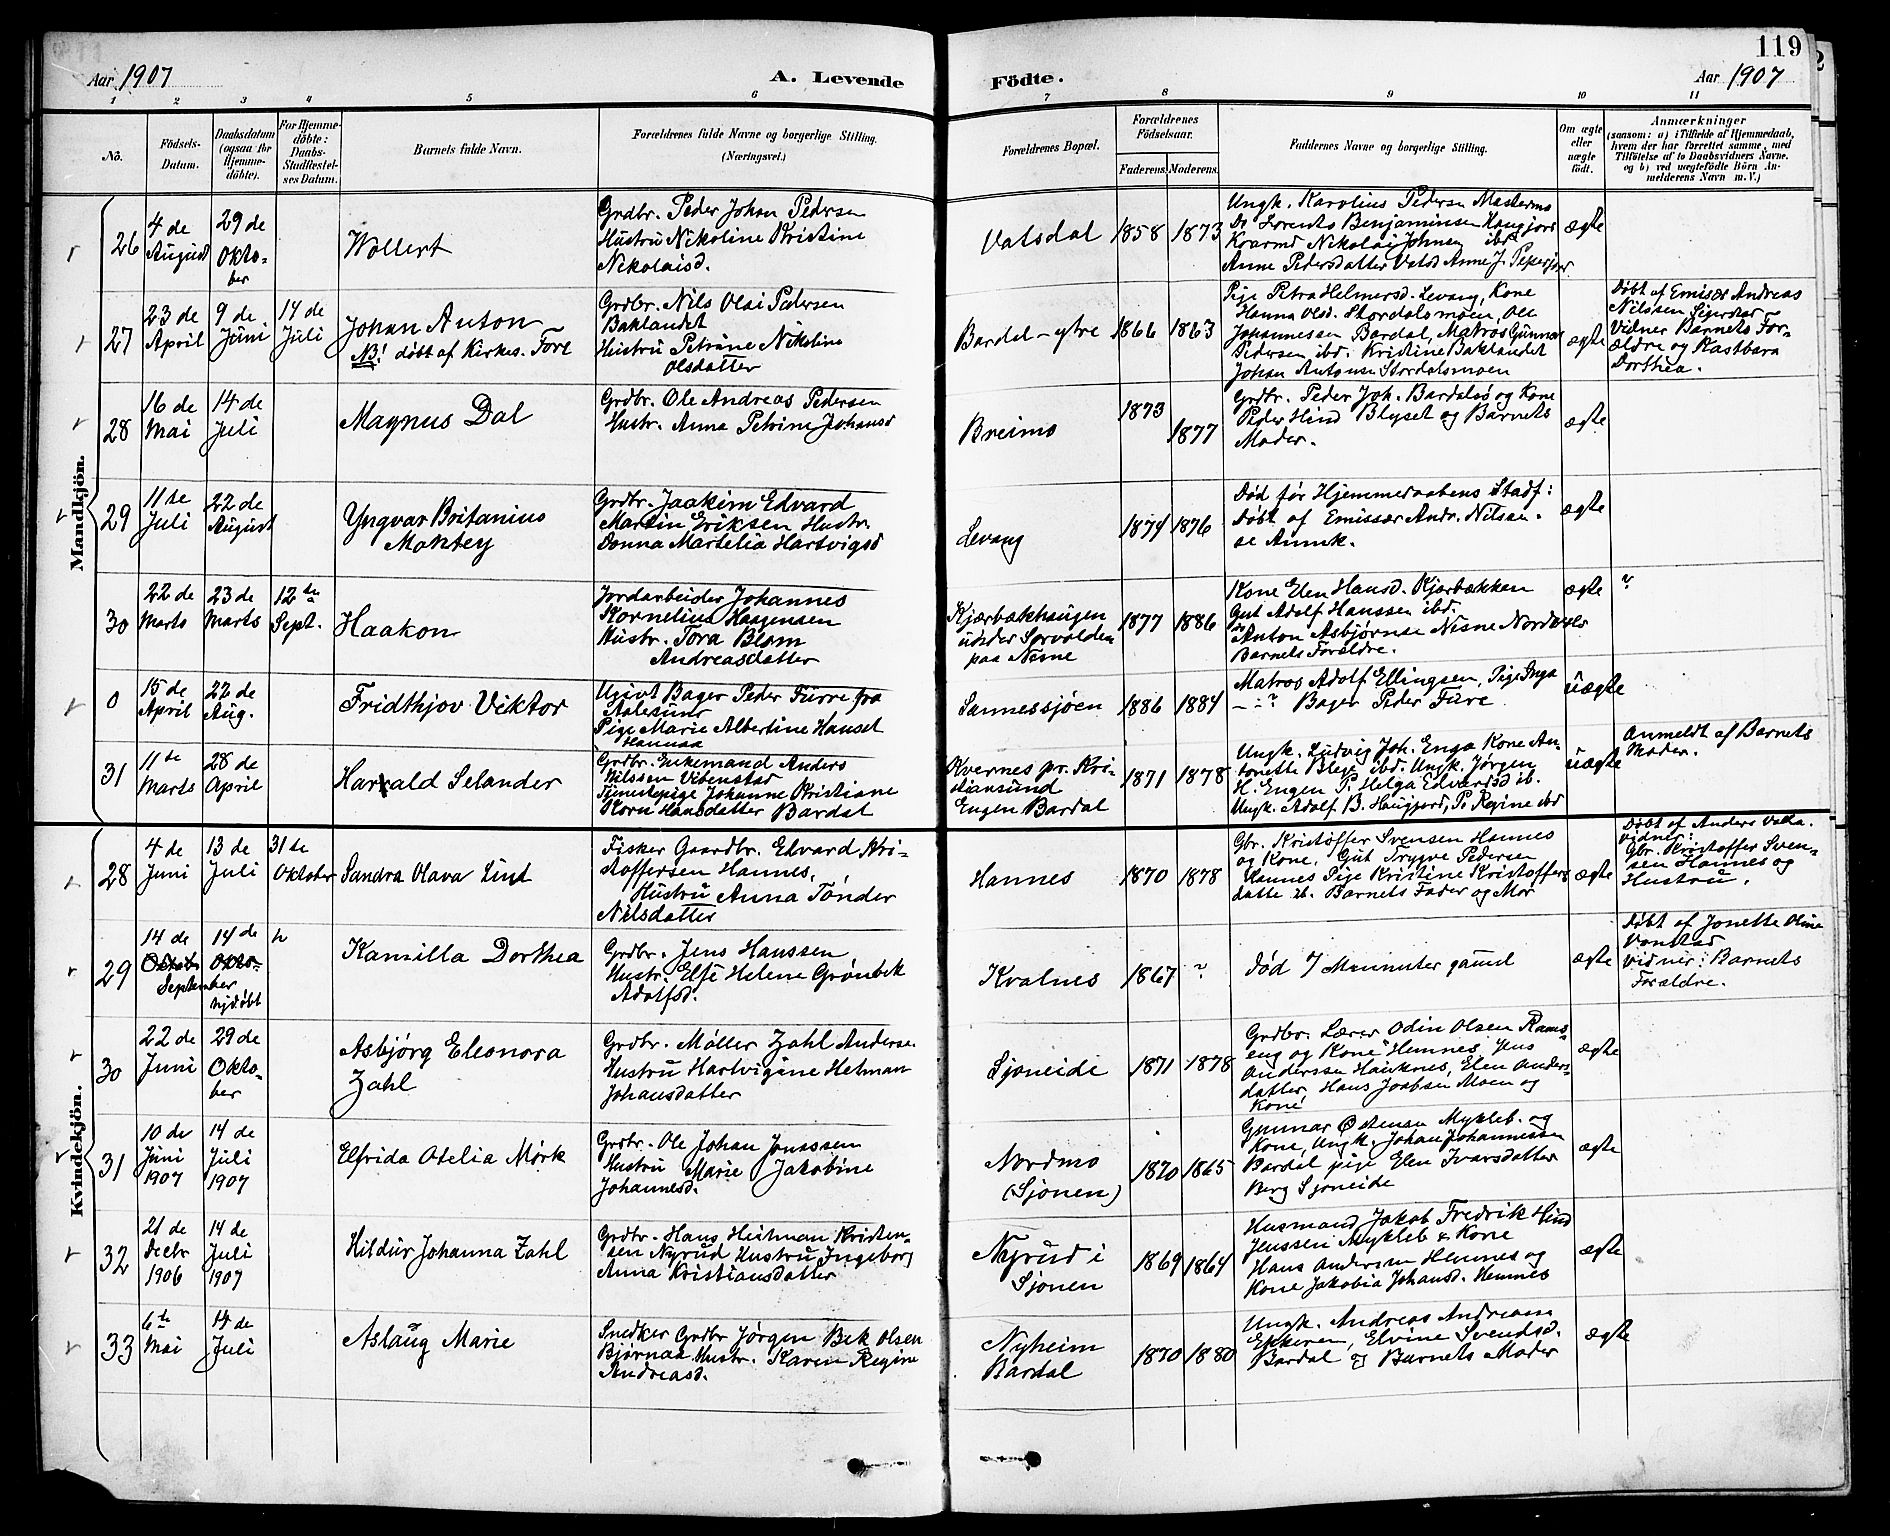 119
Aar 1907
A. Levende
Födte.
Aar 1907
1 2 3 4 5 6 7 8 9 10 11
Nô.
Födsels-Datum.
Daabsdatum (ogsaa for Hjemmedöbte).
For Hjemmedöbte: Daabs-Stadfæstelses Datum.
Barnets fulde Navn.
Forældrenes fulde Navne og borgerlige Stilling. (Næringsvei.)
Forældrenes Bopæl.
Forældrenes Födselsaar.
Faderens. Moderens.
Faddernes Navne og borgerlige Stilling.
Om ægte eller uægte födt.
Anmærkninger
(saasom: a) i Tilfælde af Hjemmedaab, hvem der har forrettet samme, med Tilföielse af to Daabsvidners Navne. og b) ved uægtefödte Börn Anmelderens Navn m. V.)
Mandkjön.
26
4 de August
29 de Oktober
Wollert
Grdbr. Peder Johan Pedersen
Hustru Nikoline Kristine
Nikolaisd.
Vatsdal
1858 1873
Ungk. Karolius Pedersen Mastermo
Do Lorents Benjaminsen Haugjord
Kaarmd Nikolai Johnsen ibd
Anne Pedersdatter Vatsd Anne J.
ægte
27
23 de April
9 de Juni
14 de Juli
Johan Anton
NB! döbt af Kirkes. Fore
Grdbr. Nils Olai Pedersen
Baklandet
Hustru Petrine Nikoline
Olsdatter
Bardal-ytre
1866 1863
Pige Petra Helmersd. Levang, Kone
Hanna Olsd. Stordalsmoen, Ole
Johannessen Bardal, Matros Gunnar
Pedersen ibd. Kristine Baklandet
Johan Antonsen Stordalsmoen
ægte
Döbt af Emisær Andreas
Nilssen
Vidner Barnets For-
ældre og
Dorthea.
28
16 de Mai
14 de Juli
Magnus Dal
Grdbr. Ole Andreas Pedersen
Hustr. Anna Petrine Johansd
Breimo
1873 1877
Grdbr. Peder Joh. Bardalsø og Kone
Peder Hind Blyset og Barnets
Moder.
ægte
29
11 te Juli
22 de August
Yngvar Britanius
Montey
Grdbr. Joakim Edvard
Martin Eriksen Hustr.
Donna Martelia Hartvigsd
Levang
1874 1876
Död før Hjemmedaabens Stadf:
Døbt af Emissær Andr. Nilsen.
se Anmk.
ægte
30
22 de Marts
23 de Marts
12 te Sept.
Haakon
Jordarbeider Johannes
Kornelius Haagensen
Hustr. Tora Blom
Andreasdatter
Kjærbækhaugen
under Sørvolden
paa Nesne
1877 1886
Kone Elen Hansd. Kjærbækken
Gut Adolf Hanssen ibd.
Do Anton Asbjørnse Nesne
Barnets Forældre.
ægte
?
0
15 de April
22 de Aug.
Fridthjov Viktor
Ugivt Bager Peder Furre fra
Aalesund
Pige Marie Albertine Hansd
Hannaa
Sannessjöen
1886 1884
Matros Adolf Ellingsen, Pige Inga
– – ? Bager Peder Fure
uægte
31
11 te Marts
28 de April
Harald Selander
Grdbr. Enkemand Anders
Nilssen Vibenstad
Tjenestepige Johanne Kristiane
Korn Hansdatter Bardal
Kvernes pr. Kri-
stiansund
Engen Bardal
1871 1878
Ungk. Ludvig Joh. Enga Kone An-
tonette Bleje ibd. Ungk. Jörgen
H. Engen P. Helga Edvardsd ib.
Ungk. Adolf B. Haugjord, P. Regine ibd
uægte
Anmeldt af Barnets
Moder.
Kvindekjön.
28
4 de Juni
13 de Juli
31 te Oktober
Sandra Olava Lind
Fisker Gaardbr. Edvard Kri-
stoffersen Hannes,
Hustru Anna Tönder
Nilsdatter
Hannes
1870 1878
Gbr. Kristoffer Svensen Hannes
og Kone. Gut Trygve Pedersen
Hannes Pige Kristine Kristoffers
datte ib. Barnets Fader og Mor
ægte
Döbt af Anders Valla.
Vidner:
Gbr. Kristoffer Sven-
sen Hannes og
Hustru.
29
14 de September
14 de Oktober
hjdöbt
Kamilla Dorthea
Grdbr. Jens Hanssen
Hustr. Else Helene Grönbek
Adolfsd.
Kvalnes
1867 ?
Död 7 Minnuter gamel
ægte
Döbt af Jonette Oline
Vanstad
Vidner: Barnets
Forældre.
30
22 de Juni
29 de Oktober
Asbjørg Eleonora
Zahl
Grdbr. Möller Zahl Anderse.
Hustru Hartvigine Helman
Johansdatter
Sjoneide
1871 1878
Grdbr. Lærer Odin Olsen Rams-
eng og Kone Hemnes, Jens
Anderssen Hauknes, Elen Anders-
datter, Hans Joabsen Moen og
Kone
ægte
31
10 de Juni 1907
14 de Juli 1907
Elfrida Otelia Mörk
Grdbr. Ole Johan Jonsson
Hustru Marie Jakobine
Johannesd.
Nordmo
(Sjonen)
1870 1865
Gunnar Østensen Mykleb. og
Kone, Ungk. Johan Johannessen
Bardal pige Elen Ivarsdatter
Berg Sjoneide
ægte
32
21 de Decbr 1906
14 de Juli 1907
Hildur Johanna Zahl
Grdbr. Hans Heitman Kristen-
sen Nyrud Hustru Ingeborg
Anna Kristiansdatter
Nyrud i
Sjonen
1869 1864
Husmand Jakob Fredrik Hind
Jenssen Mykleb & Kone
Hans Andersen Hemnes og
Kone Jakobia Johansd. Hemnes
ægte
33
6 te Mai
14 de Juli
Aslaug Marie
Snedker Grdbr Jørgen Bek Olsen
Bjørnaa Hustr. Karen Regine
Andreasd.
Nyheim
Bardal
1870 1880
Ungk. Andreas Andreasse
Elvine Svendsd.
Bardal og Barnets Moder
ægte